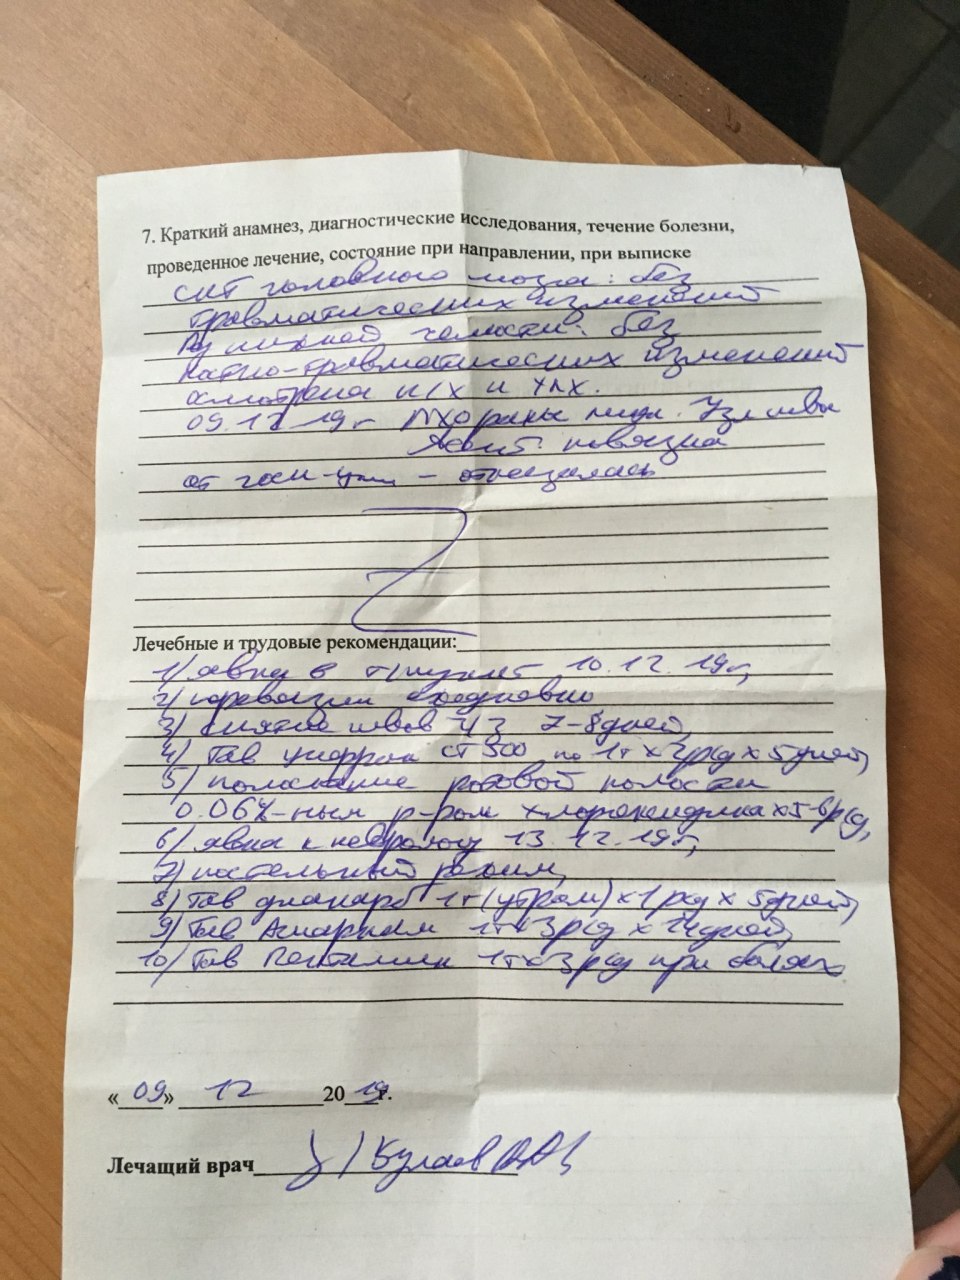 7. Краткий анамнез, диагностические исследования, течение болезни,
проведенное лечение, состояние при направлении, при выписке
СКТ головного мозга: без
травматических изменений
нижней челюсти: без
костно-травматических изменений
осмотрена н/х и члх.
09.12.19г ПХО раны лица. Уз швы
Асепт. повязка
от госп-ции – отказалась
Лечебные и трудовые рекомендации:
1) явка в т/пункт 10.12.19г,
2) перевязки ежедневно
3) снятие швов ч/з 7-8 дней,
4) Таб цифран ст 500 по 1т х 2р/д х 5 дней,
5) полоскание ротовой полости
0.06%-ным р-ром хлоргексидина х 5-6р/д,
6) явка к неврологу 13.12.19г,
7) постельный режим,
8) Таб диакарб 1т (утром) х 1р/д х 5 дней,
9) Таб Аспаркам 1т х 3р/д х дней,
10) Таб Пенталгин 1т х 3р/д при болях
«09» 12 2019г.
Лечащий врач